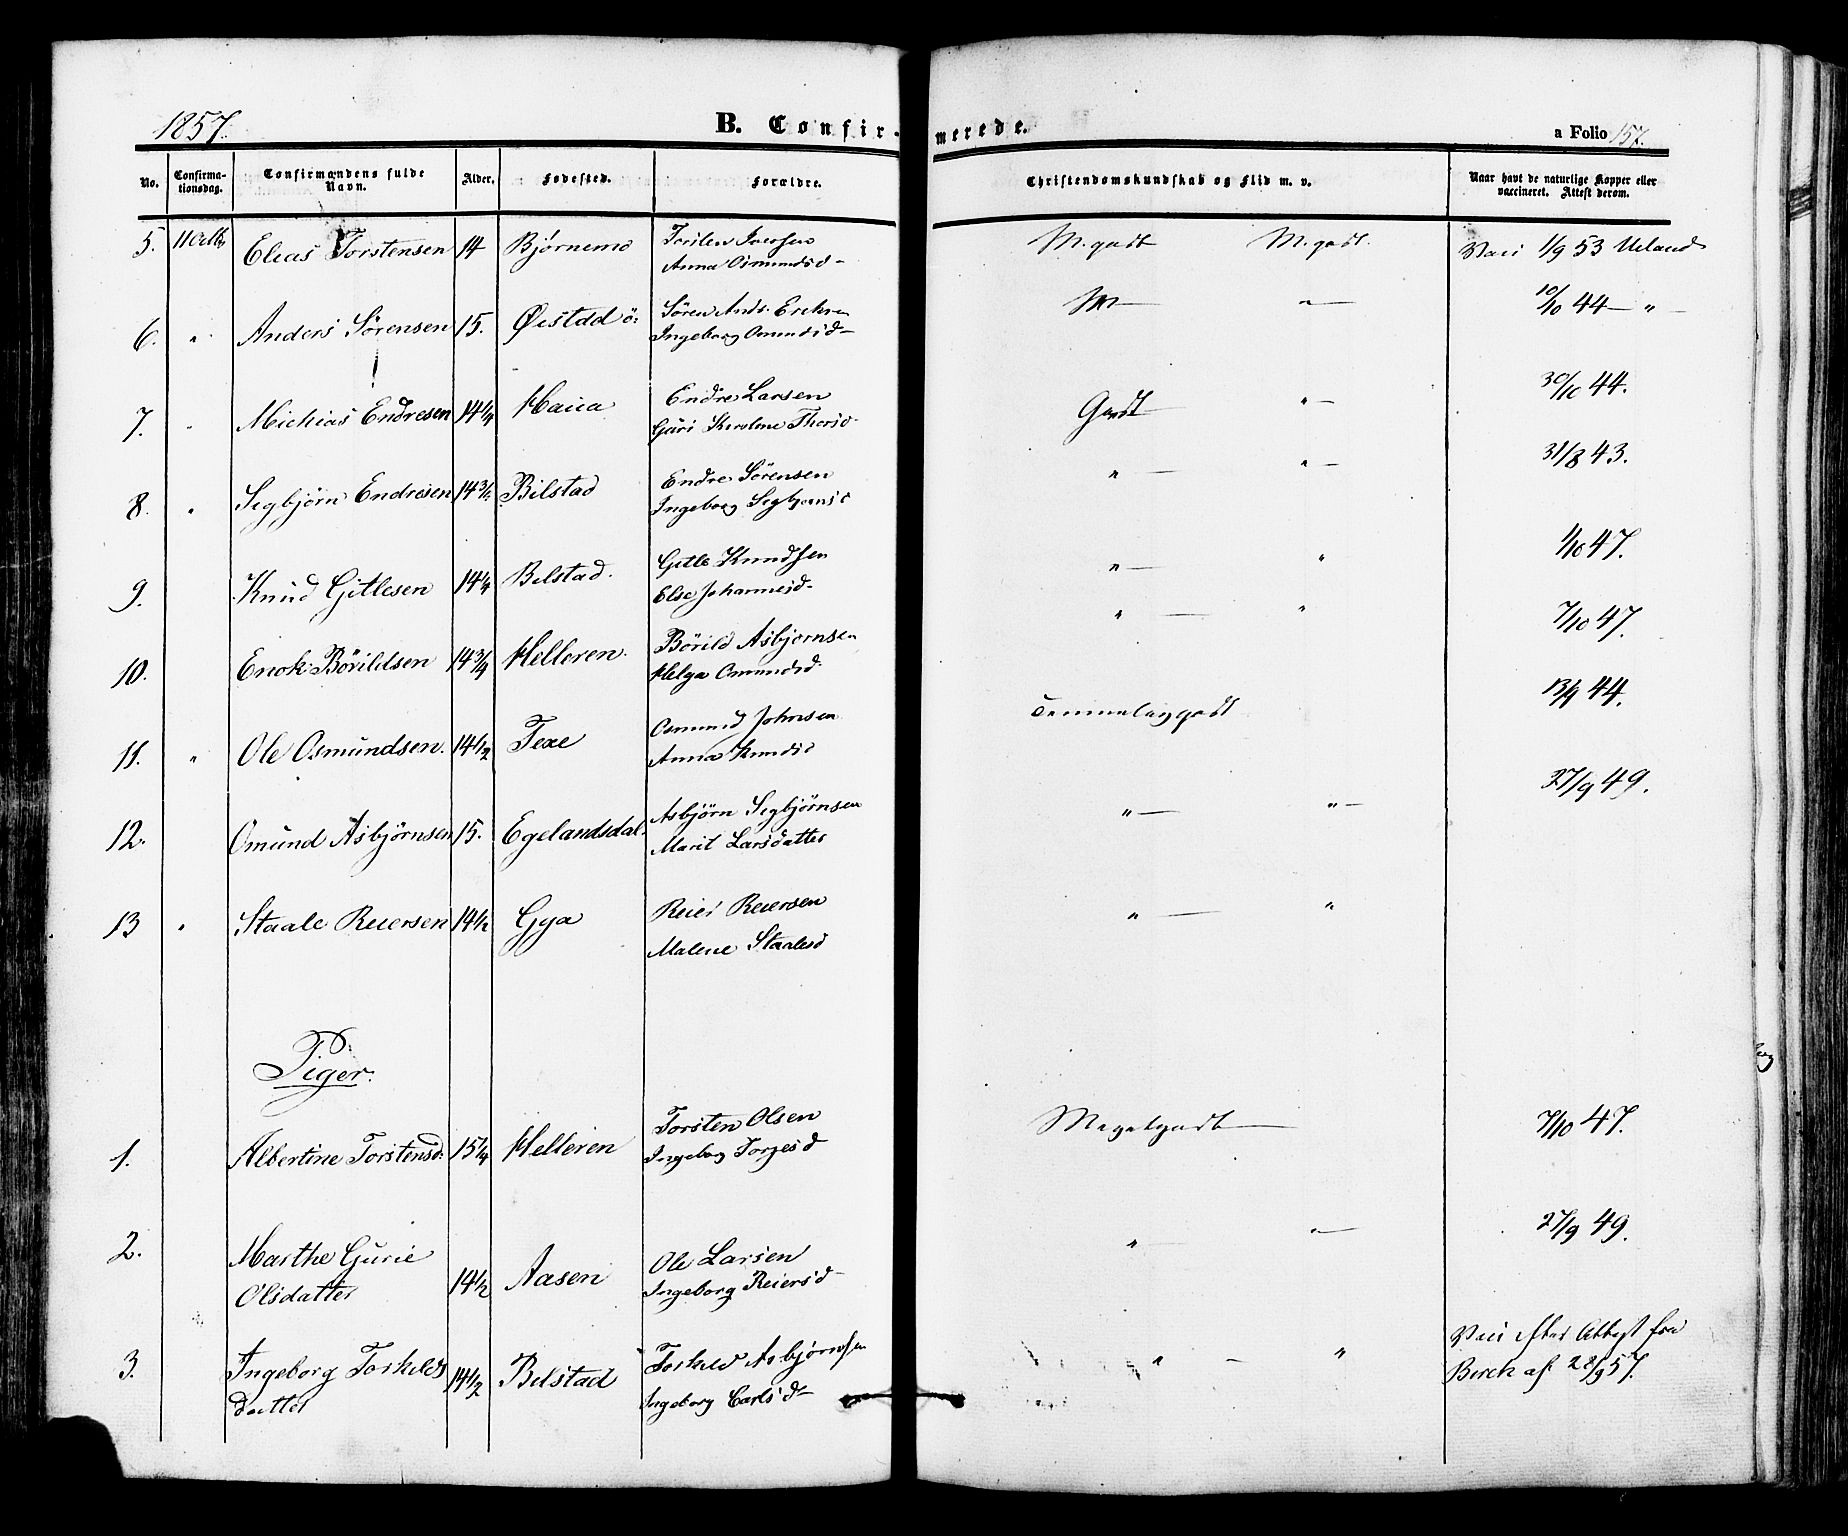 1857.
B. Confir-
merede.
a Folio 157.
No.
Confirma-
tionsdag.
Confirmandens fulde
Navn.
Alder.
Fødested.
Forældre.
Christendomskundskab og Flid m. v.
Naar havt de naturlige Kopper eller
vaccineret. Attest derom.
5. 11 Octbr Elias Torstensen 14 Bjørnemo
Anna Osmundsd- M. godt M. godt. Vacc 1/9 53 Ueland
6. " Anders Sørensen 15. Sören Ands.
Ingeborg Omundsd- M — " — 10/10 44 — " —
7. " Michias Endresen 14 1/4 Endre Larsen
Guri Karoline Thorsd- Godt — " — 30/10 44.
8. " Segbjörn Endresen 14 3/4 Bilstad Endre Sörensen
Ingeborg Segbjornsd " — " — 31/8 43.
9. Knud Gitlesen 14 1/4 Bilstad. Gitle Knudsen
Else Johannesd- " — " 1/10 47.
10. Enok Börildsen 14 3/4 Helleren. Börild Asbjornsen
Helga Omundsd. " — " 7/10 47.
11. " Ole Osmundsen. 14 1/2 Texe Osmund Johnsen
Anna Knudsd Temmelig godt 13/9 44.
12. Omund Asbjørnsen 15. Egelandsdal. Asbjørn Segbjørnsen
Marit Larsdatter " — " — 27/9 49.
13 " Staale Reiersen 14 1/2 Gya Reier Reiersen
Malene Staalesd " — "
Piger.
1. Albertine Torstensd. 15 1/4 Helleren Torsten Olsen
Ingeborg Torgesd Megetgodt — 7/10 47.
2. Marthe Gurie
Olsdatter 14 1/2 Aasen Ole Larsen
Ingeborg Reiersd- " — " — 27/9 49.
3. Ingeborg Torkilds
datter 14 1/2 Bilstad Torkild Asbjørnsen
Ingeborg Carlsd- " — " Vacc efter Attest fra
Birch af 28/9 57.